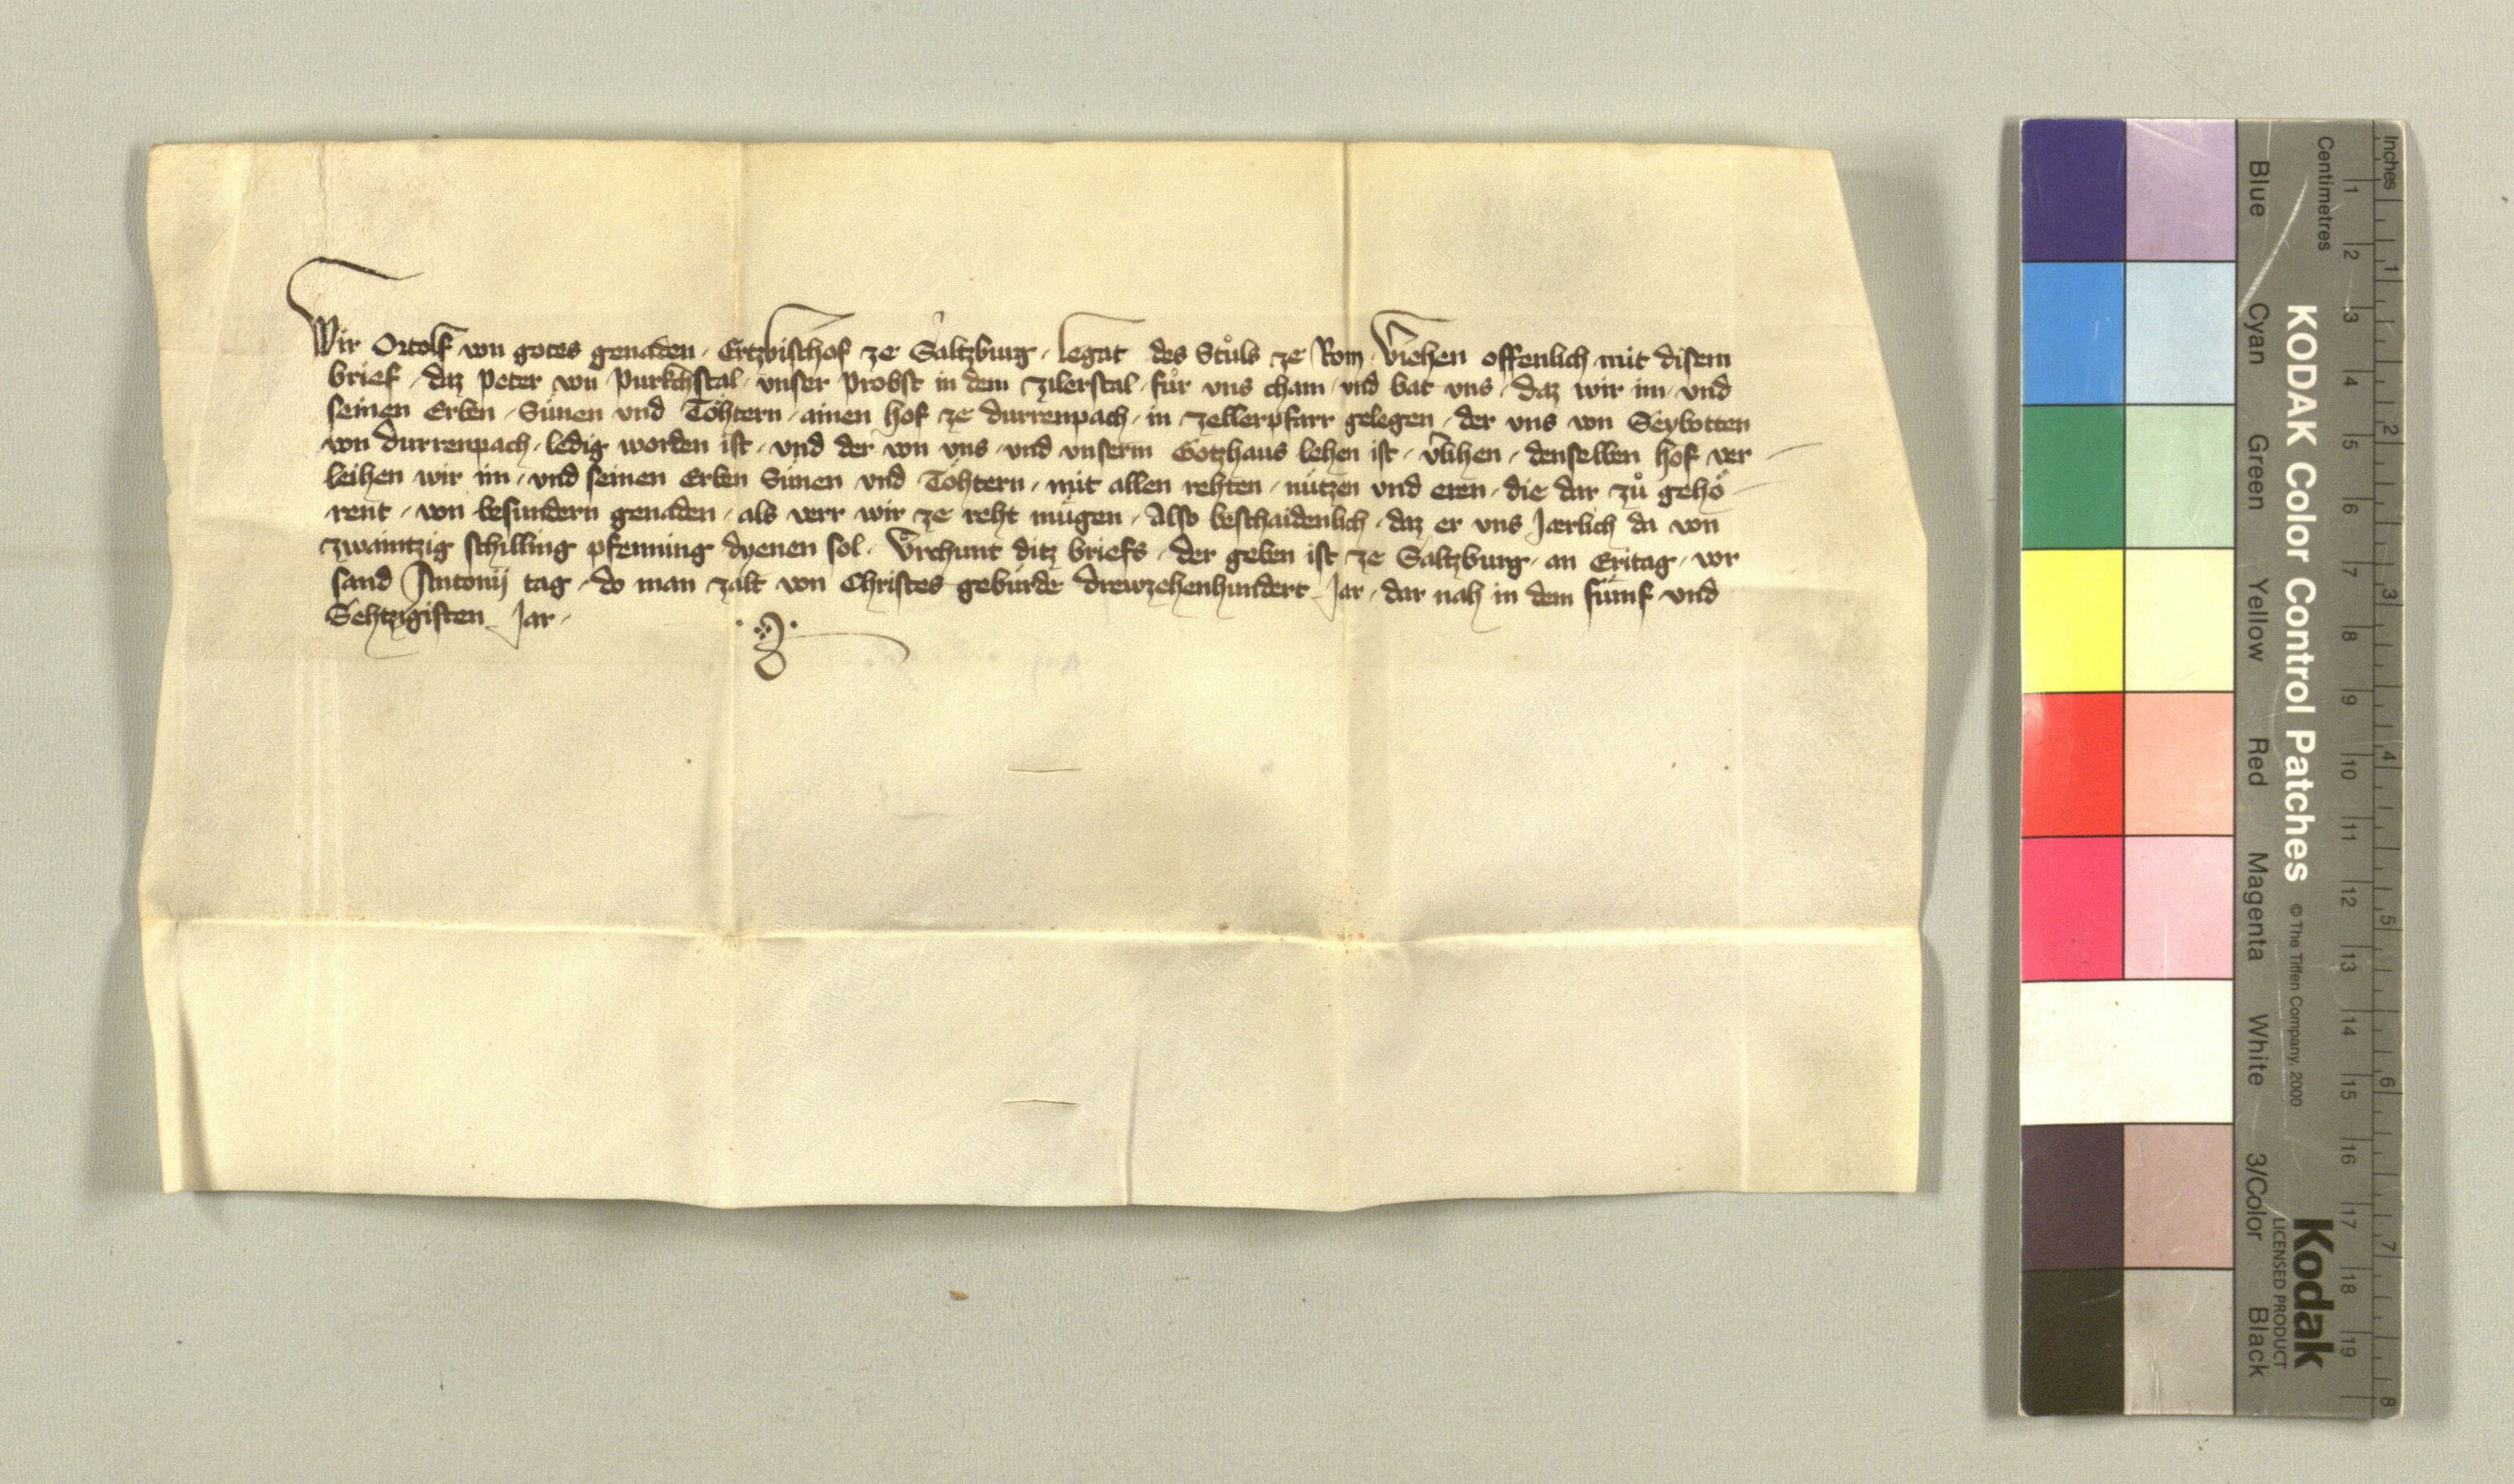 Wir Ortolf von gotes genaden · Ertzbischof ze Saltzburg · legat des Stůls ze Rom · V̄iehen offenlich mit disem
brief · daz Peter von Purkchstal · vnser Probst in dem Zilerstal · fůr vns cham · vnd bat vns · daz wir im · vnd
seinen Erben · Sünen vnd Töhtern · ainen hof ze durrenpach · in zellerpfarr gelegen · der vns von Seybotten
von durrenpach · ledig worden ist · vnd der von vns · vnd vnserm Gotzhaus lehen ist · v̄lihen · denselben hof ver
leihen wir im · vnd seinen Erben Sünen vnd Töhtern · mit allen rehten · nützen vnd eren · die dar zů gehö
rent · von besundern genaden · als verr wir ze reht mügen · Also beschaidenlich · daz er vns Jærlich da von
zwaintzig schilling pfenning dyenen sol · Vrchunt ditz briefs · der geben ist ze Saltzburg · an Eritag · vor
sand Antonij tag · do man zalt von Christes gebürde drewzehenhundert Jar · dar nah in dem fümf vnd
Sehtzigisten Jar ·
Inches
Centimetres
1 2 3 4 5 6 7 8
1 2 3 4 5 6 7 8 9 10 11 12 13 14 15 16 17 18 19
KODAK Color Control Patches © The Tiffen Company, 2000
Kodak
LICENSED PRODUCT
Blue Cyan Green Yellow Red Magenta White 3/Color Black